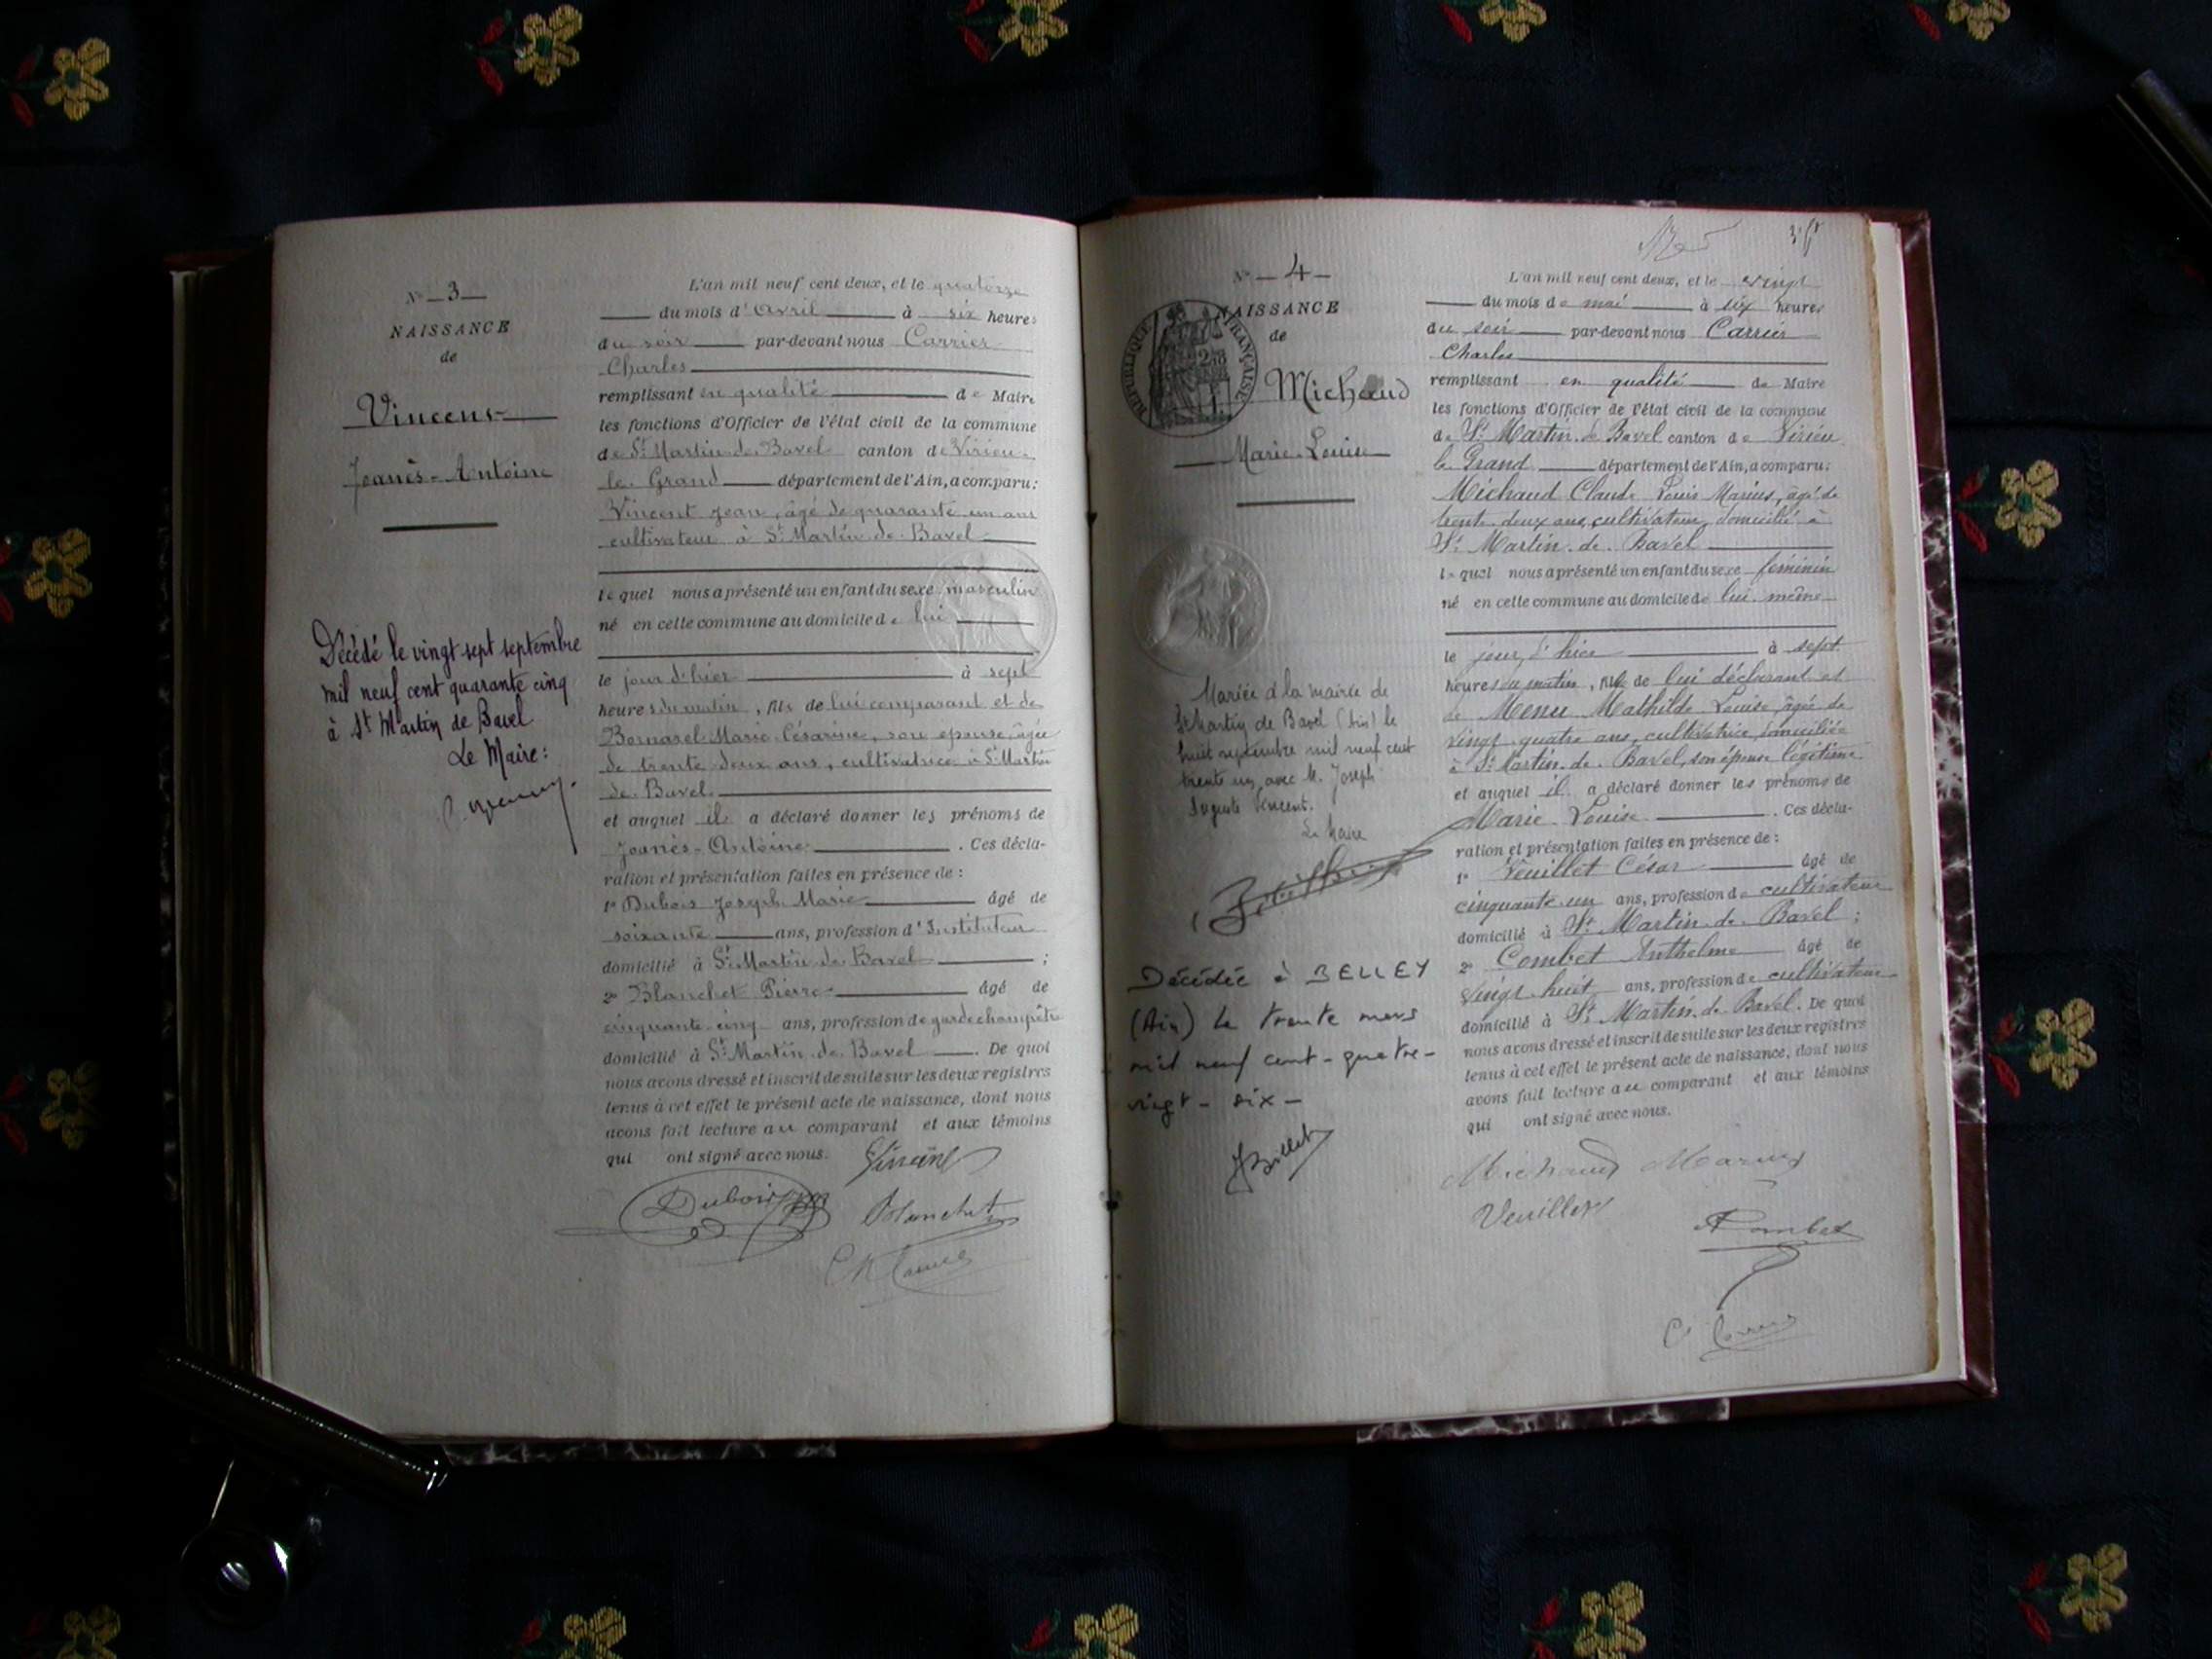 N° 3
NAISSANCE
de
Vincent
Joanès-Antoine
Décédé le vingt sept septembre
mil neuf cent quarante cinq
à St Martin de Bavel
Le Maire:
L'an mil neuf cent deux, et le quatorze
du mois d'Avril à six heures
du soir par-devant nous Carrier
Charles
remplissant en qualité de Maire
les fonctions d'Officier de l'état civil de la commune
de St Martin de Bavel canton de Virieu-
le-Grand département de l'Ain, a comparu:
Vincent Jean, âgé de quarante un ans
cultivateur à St Martin de Bavel
lequel nous a présenté un enfant du sexe masculin
né en cette commune au domicile de lui
le jour d'hier à sept
heures du matin, fils de lui comparant et de
Bornarel Marie Césarine, son épouse, âgée
de trente deux ans, cultivatrice à St Martin
de Bavel
et auquel il a déclaré donner les prénoms de
Joanès-Antoine. Ces décla-
ration et présentation faites en présence de:
1° Dubois Joseph Marie âgé de
soixante ans, profession d'Instituteur
domicilié à St Martin de Bavel;
2° Blanchet Pierre âgé de
cinquante-cinq ans, profession de garde champêtre
domicilié à St Martin de Bavel. De quoi
nous avons dressé et inscrit de suite sur les deux registres
tenus à cet effet le présent acte de naissance, dont nous
avons fait lecture au comparant et aux témoins
qui ont signé avec nous.
Vincent
Dubois
Blanchet
Ch Carrier
N° 4
NAISSANCE
de
RÉPUBLIQUE FRANÇAISE
Michaud
Marie-Louise
Mariée à la mairie de
St Martin de Bavel (Ain) le
huit septembre mil neuf cent
trente un avec M. Joseph
Auguste Vincent.
Le Maire
Décédée à BELLEY
(Ain) le trente mars
mil neuf cent-quatre-
vingt-six-
JBillet
L'an mil neuf cent deux, et le vingt
du mois de mai à six heures
du soir par-devant nous Carrier
Charles
remplissant en qualité de Maire
les fonctions d'Officier de l'état civil de la commune
de St Martin de Bavel canton de Virieu
le Grand département de l'Ain, a comparu:
Michaud Claude Louis Marius, âgé de
trente deux ans, cultivateur, domicilié à
St Martin de Bavel
lequel nous a présenté un enfant du sexe féminin
né en cette commune au domicile de lui même
le jour d'hier à sept
heures du matin, fille de lui déclarant et
de Menu Mathilde Louise, âgée de
vingt quatre ans, cultivatrice, domiciliée
à St Martin de Bavel, son épouse légitime
et auquel il a déclaré donner les prénoms de
Marie Louise. Ces décla-
ration et présentation faites en présence de:
1° Veuillet César âgé de
cinquante un ans, profession de cultivateur
domicilié à St Martin de Bavel;
2° Combet Anthelme âgé de
vingt huit ans, profession de cultivateur
domicilié à St Martin de Bavel. De quoi
nous avons dressé et inscrit de suite sur les deux registres
tenus à cet effet le présent acte de naissance, dont nous
avons fait lecture au comparant et aux témoins
qui ont signé avec nous.
Michaud Marius
Veuillet
A Combet
C Carrier